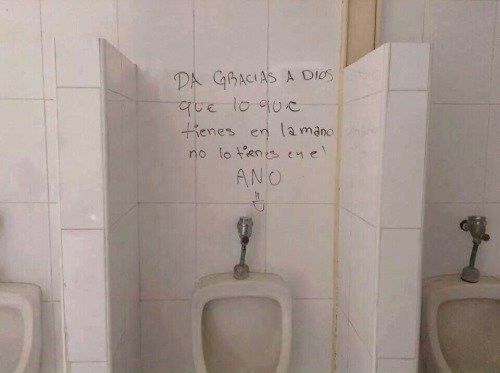 DA GRACIAS A DIOS
que lo que
tienes en la mano
no lo tienes en el
ANO